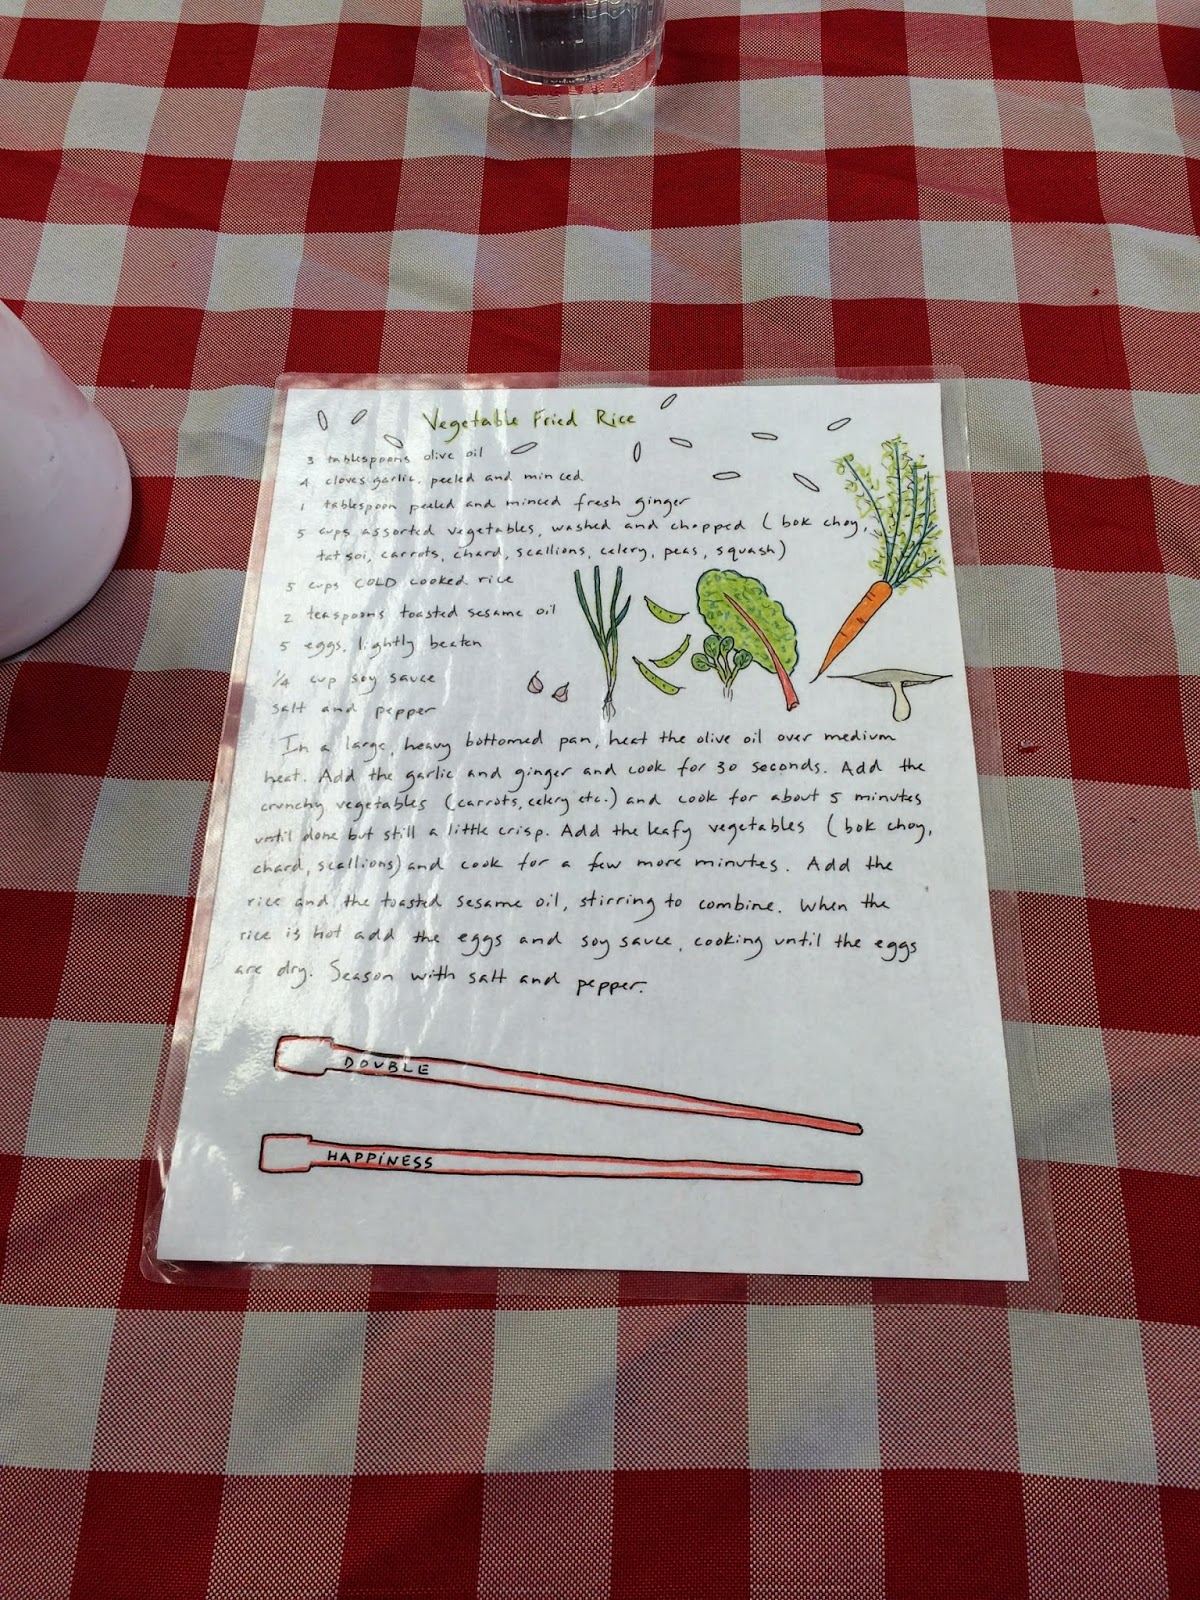 Vegetable Fried Rice
3 tablespoons olive oil
4 cloves garlic, peeled and minced
1 tablespoon peeled and minced fresh ginger
5 cups assorted vegetables, washed and chopped (bok choy,
tat soi, carrots, chard, scallions, celery, peas, squash)
5 cups COLD cooked rice
2 teaspoons toasted sesame oil
5 eggs, lightly beaten
1/4 cup soy sauce
salt and pepper
In a large, heavy bottomed pan, heat the olive oil over medium
heat. Add the garlic and ginger and cook for 30 seconds. Add the
crunchy vegetables (carrots, celery etc.) and cook for about 5 minutes
until done but still a little crisp. Add the leafy vegetables (bok choy,
chard, scallions) and cook for a few more minutes. Add the
rice and the toasted sesame oil, stirring to combine. When the
rice is hot add the eggs and soy sauce, cooking until the eggs
are dry. Season with salt and pepper.
DOUBLE
HAPPINESS